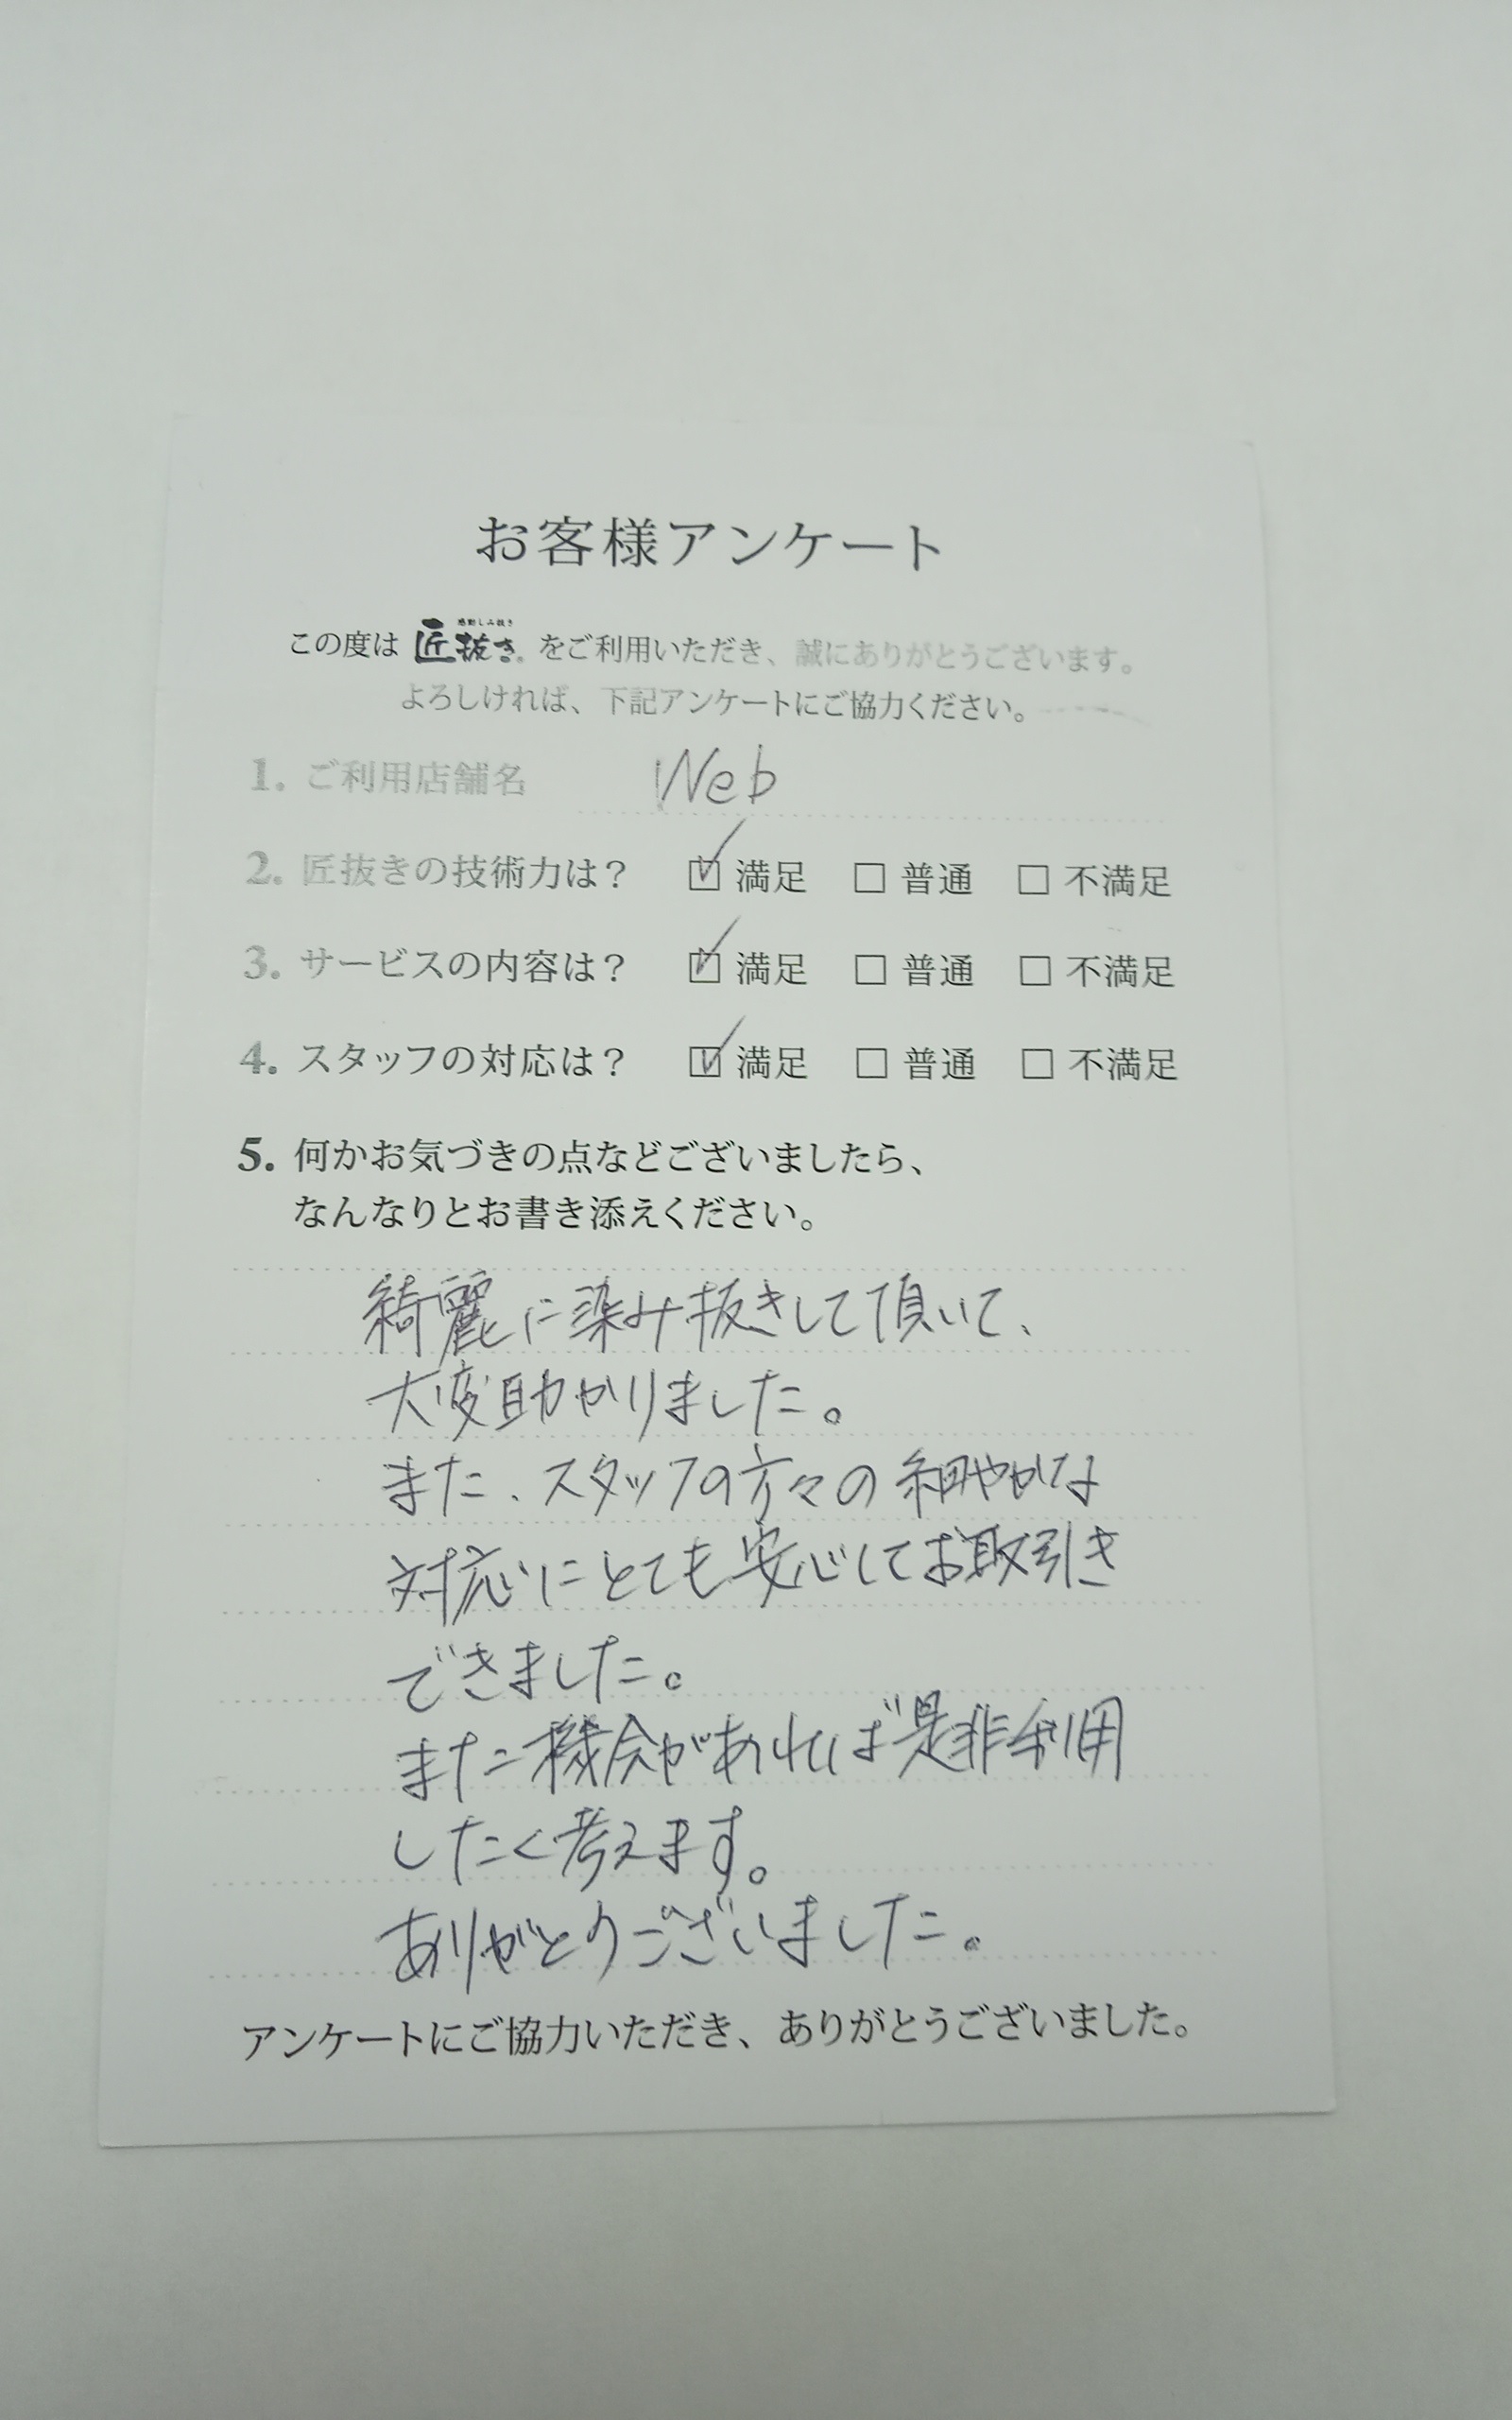 お客様アンケート
感動しみ抜き
この度は 匠抜き® をご利用いただき、誠にありがとうございます。
よろしければ、下記アンケートにご協力ください。
1. ご利用店舗名 Web
2. 匠抜きの技術力は? ☑ 満足 □ 普通 □ 不満足
3. サービスの内容は? ☑ 満足 □ 普通 □ 不満足
4. スタッフの対応は? ☑ 満足 □ 普通 □ 不満足
5. 何かお気づきの点などございましたら、
なんなりとお書き添えください。
綺麗に染み抜きして頂いて、
大変助かりました。
また、スタッフの方々の細やかな
対応にとても安心してお取引き
できました。
また機会があれば是非利用
したく考えます。
ありがとうございました。
アンケートにご協力いただき、ありがとうございました。